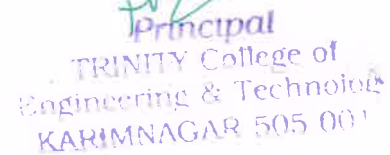 Principal
TRINITY College of
Engineering & Technolog
KARIMNAGAR 505 001